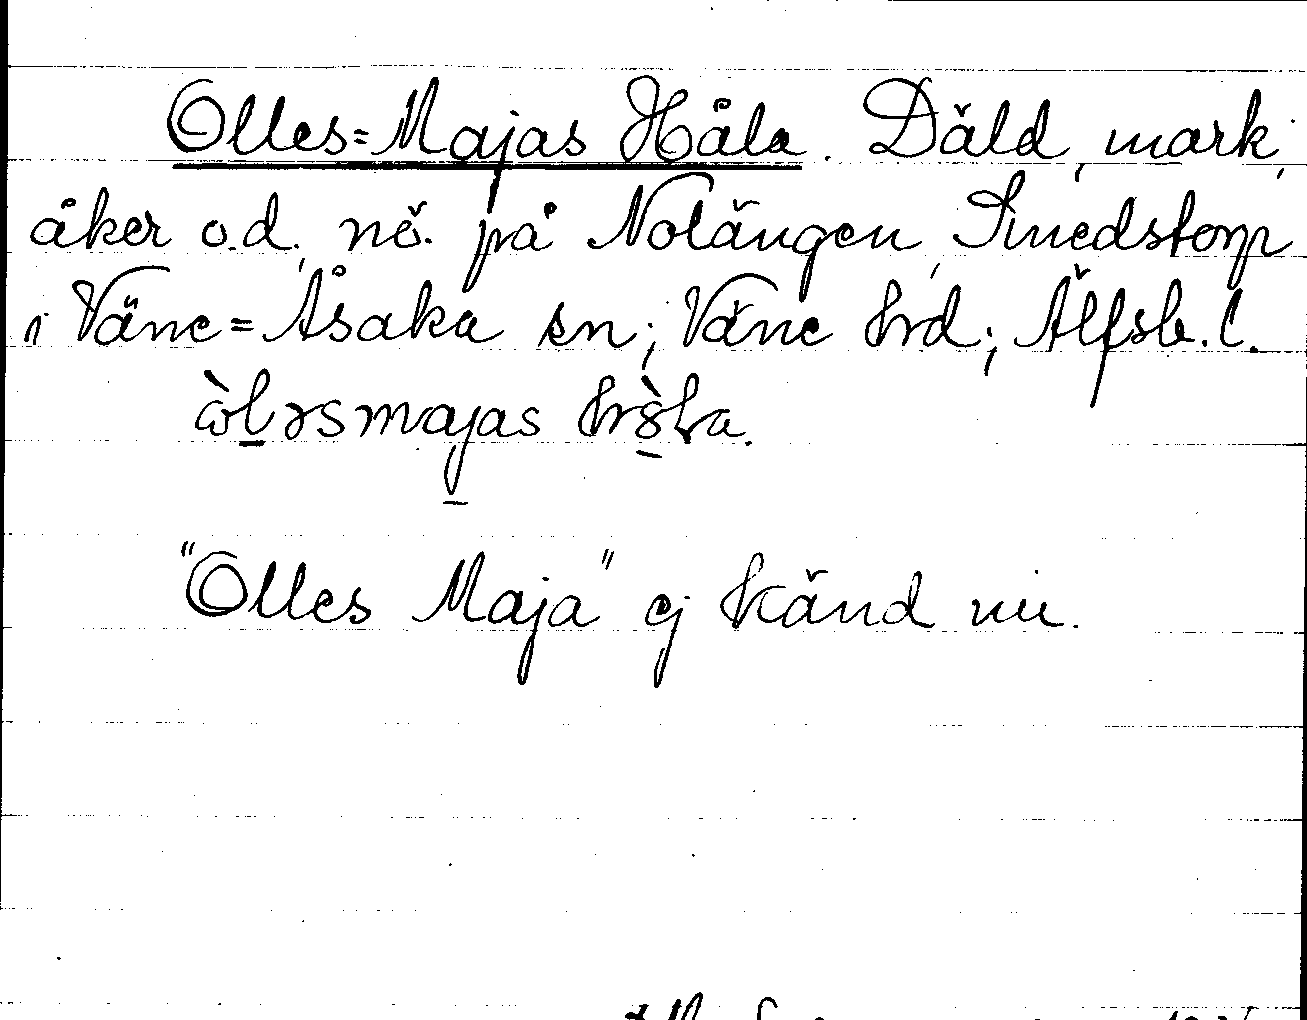 Olles=Majas Håla. Däld, mark,
åker o.d., nö. på Notängen, Smedstorp
i Väne=Åsaka sn; Väne hrd; Älfsb. l.
"Olles Maja" ej känd nu.